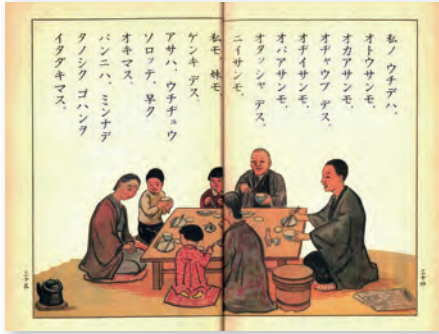 私ノ ウチデハ、
オトウサンモ、
オカアサンモ、
オヂャウブ デス。
オヂイサンモ、
オバアサンモ、
オタッシャ デス。
ニイサンモ、
私モ、妹モ、
ゲンキ デス。
アサハ、ウチヂュウ
ソロッテ、早ク
オキマス。
バンニハ、ミンナデ
タノシク ゴハンヲ
イタダキマス。
三十四
三十五